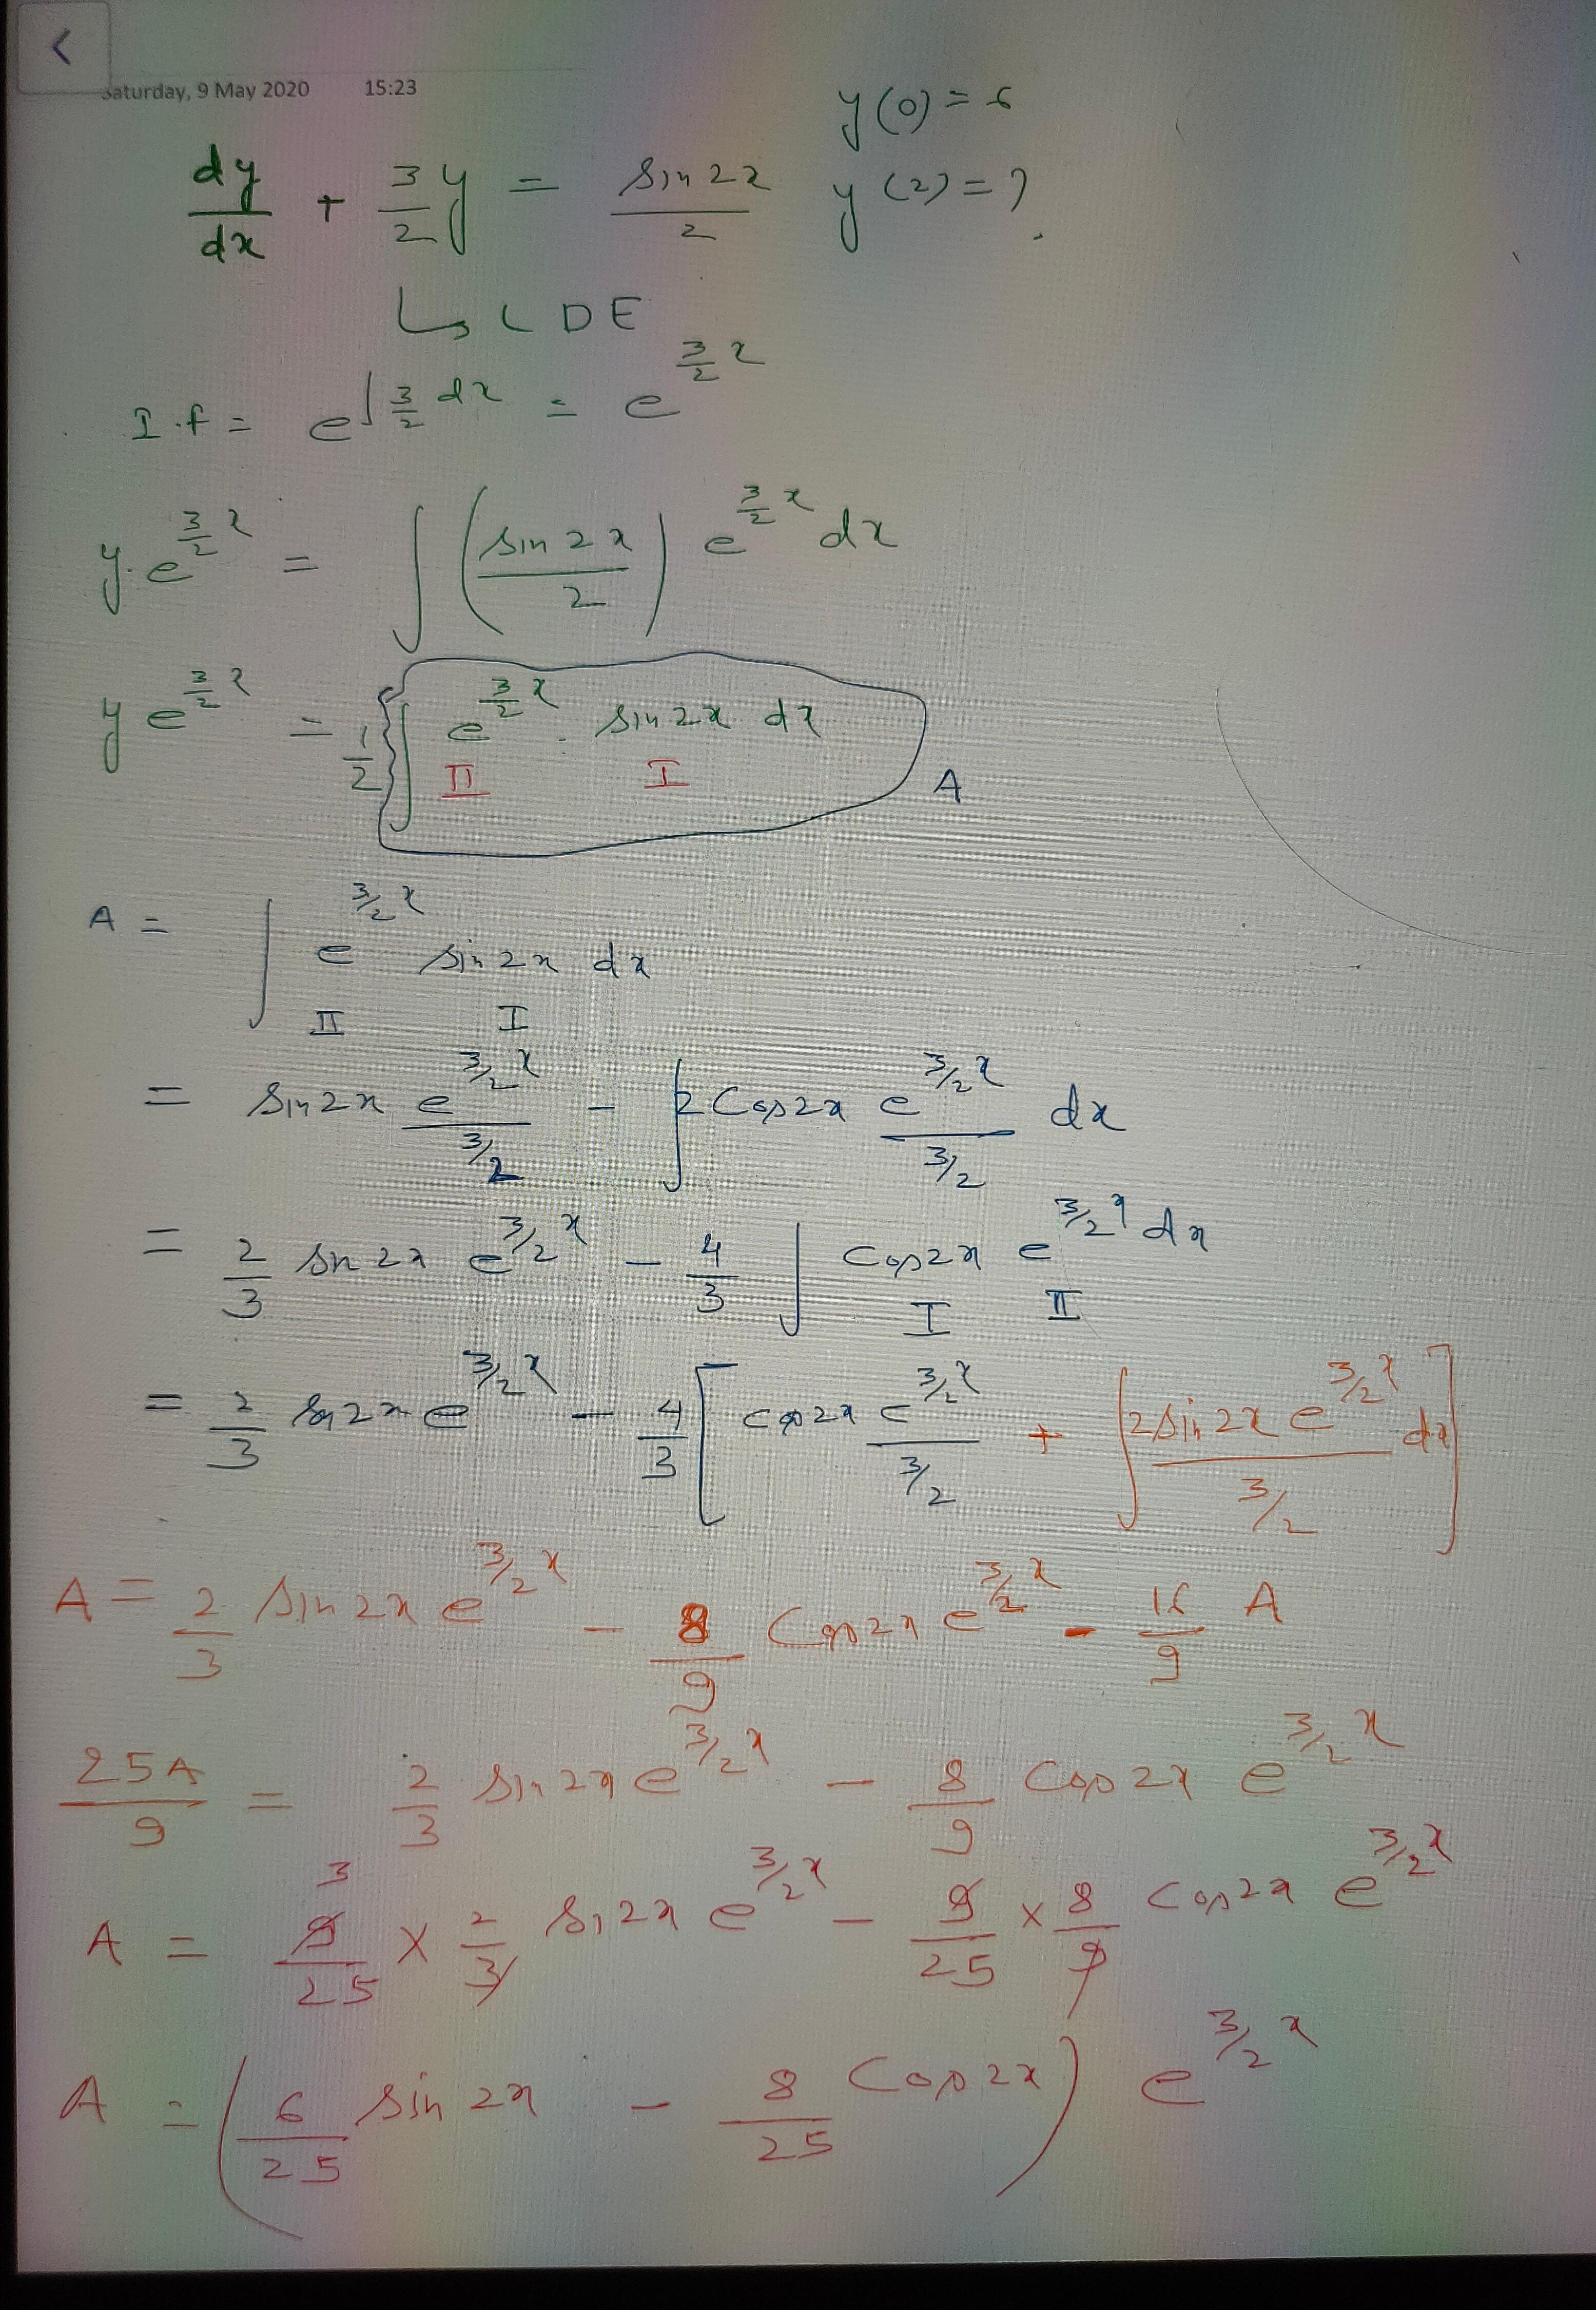 <
Saturday, 9 May 2020 15:23
y(0) = 6
dy/dx + 3/2 y = sin 2x / 2 y(2) = ?
↳ LDE
I.f = e^∫3/2 dx = e^(3/2 x)
y.e^(3/2 x) = ∫ (sin 2x / 2) e^(3/2 x) dx
y e^(3/2 x) = 1/2 { ∫ e^(3/2 x) . sin 2x dx
II I A
A = ∫ e^(3/2 x) sin 2x dx
II I
= sin 2x e^(3/2 x) / (3/2) - ∫ 2 Cos 2x e^(3/2 x) / (3/2) dx
= 2/3 sin 2x e^(3/2 x) - 4/3 ∫ Cos 2x e^(3/2 x) dx
I II
= 2/3 sin 2x e^(3/2 x) - 4/3 [ cos 2x e^(3/2 x) / (3/2) + ∫ 2 sin 2x e^(3/2 x) / (3/2) dx ]
A = 2/3 sin 2x e^(3/2 x) - 8/9 Cos 2x e^(3/2 x) - 16/9 A
25A/9 = 2/3 sin 2x e^(3/2 x) - 8/9 Cos 2x e^(3/2 x)
3
A = 9/25 × 2/3 sin 2x e^(3/2 x) - 9/25 × 8/9 Cos 2x e^(3/2 x)
A = ( 6/25 sin 2x - 8/25 Cos 2x ) e^(3/2 x)